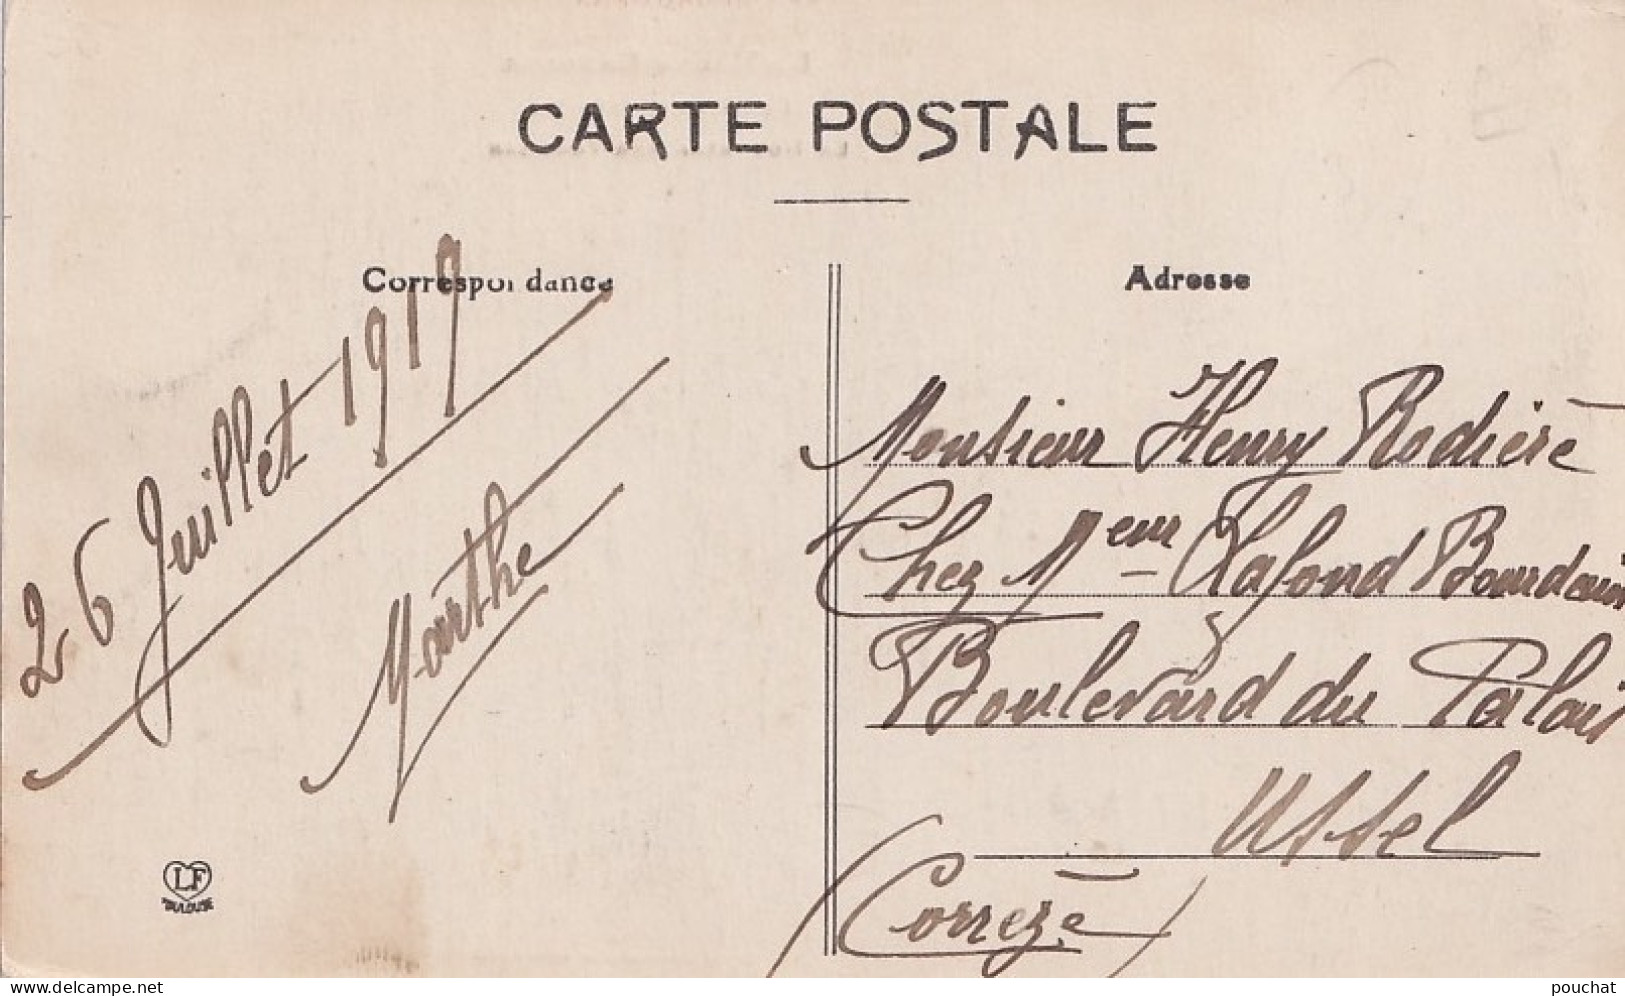 CARTE POSTALE
Correspondance
26 Juillet 1919
Marthe
LF
TOULOUSE
Adresse
Monsieur Henry Rodière
Chez Meur Lafond
Boulevard du Palais
Ussel
(Corrèze)
www.delcampe.net
pouchat